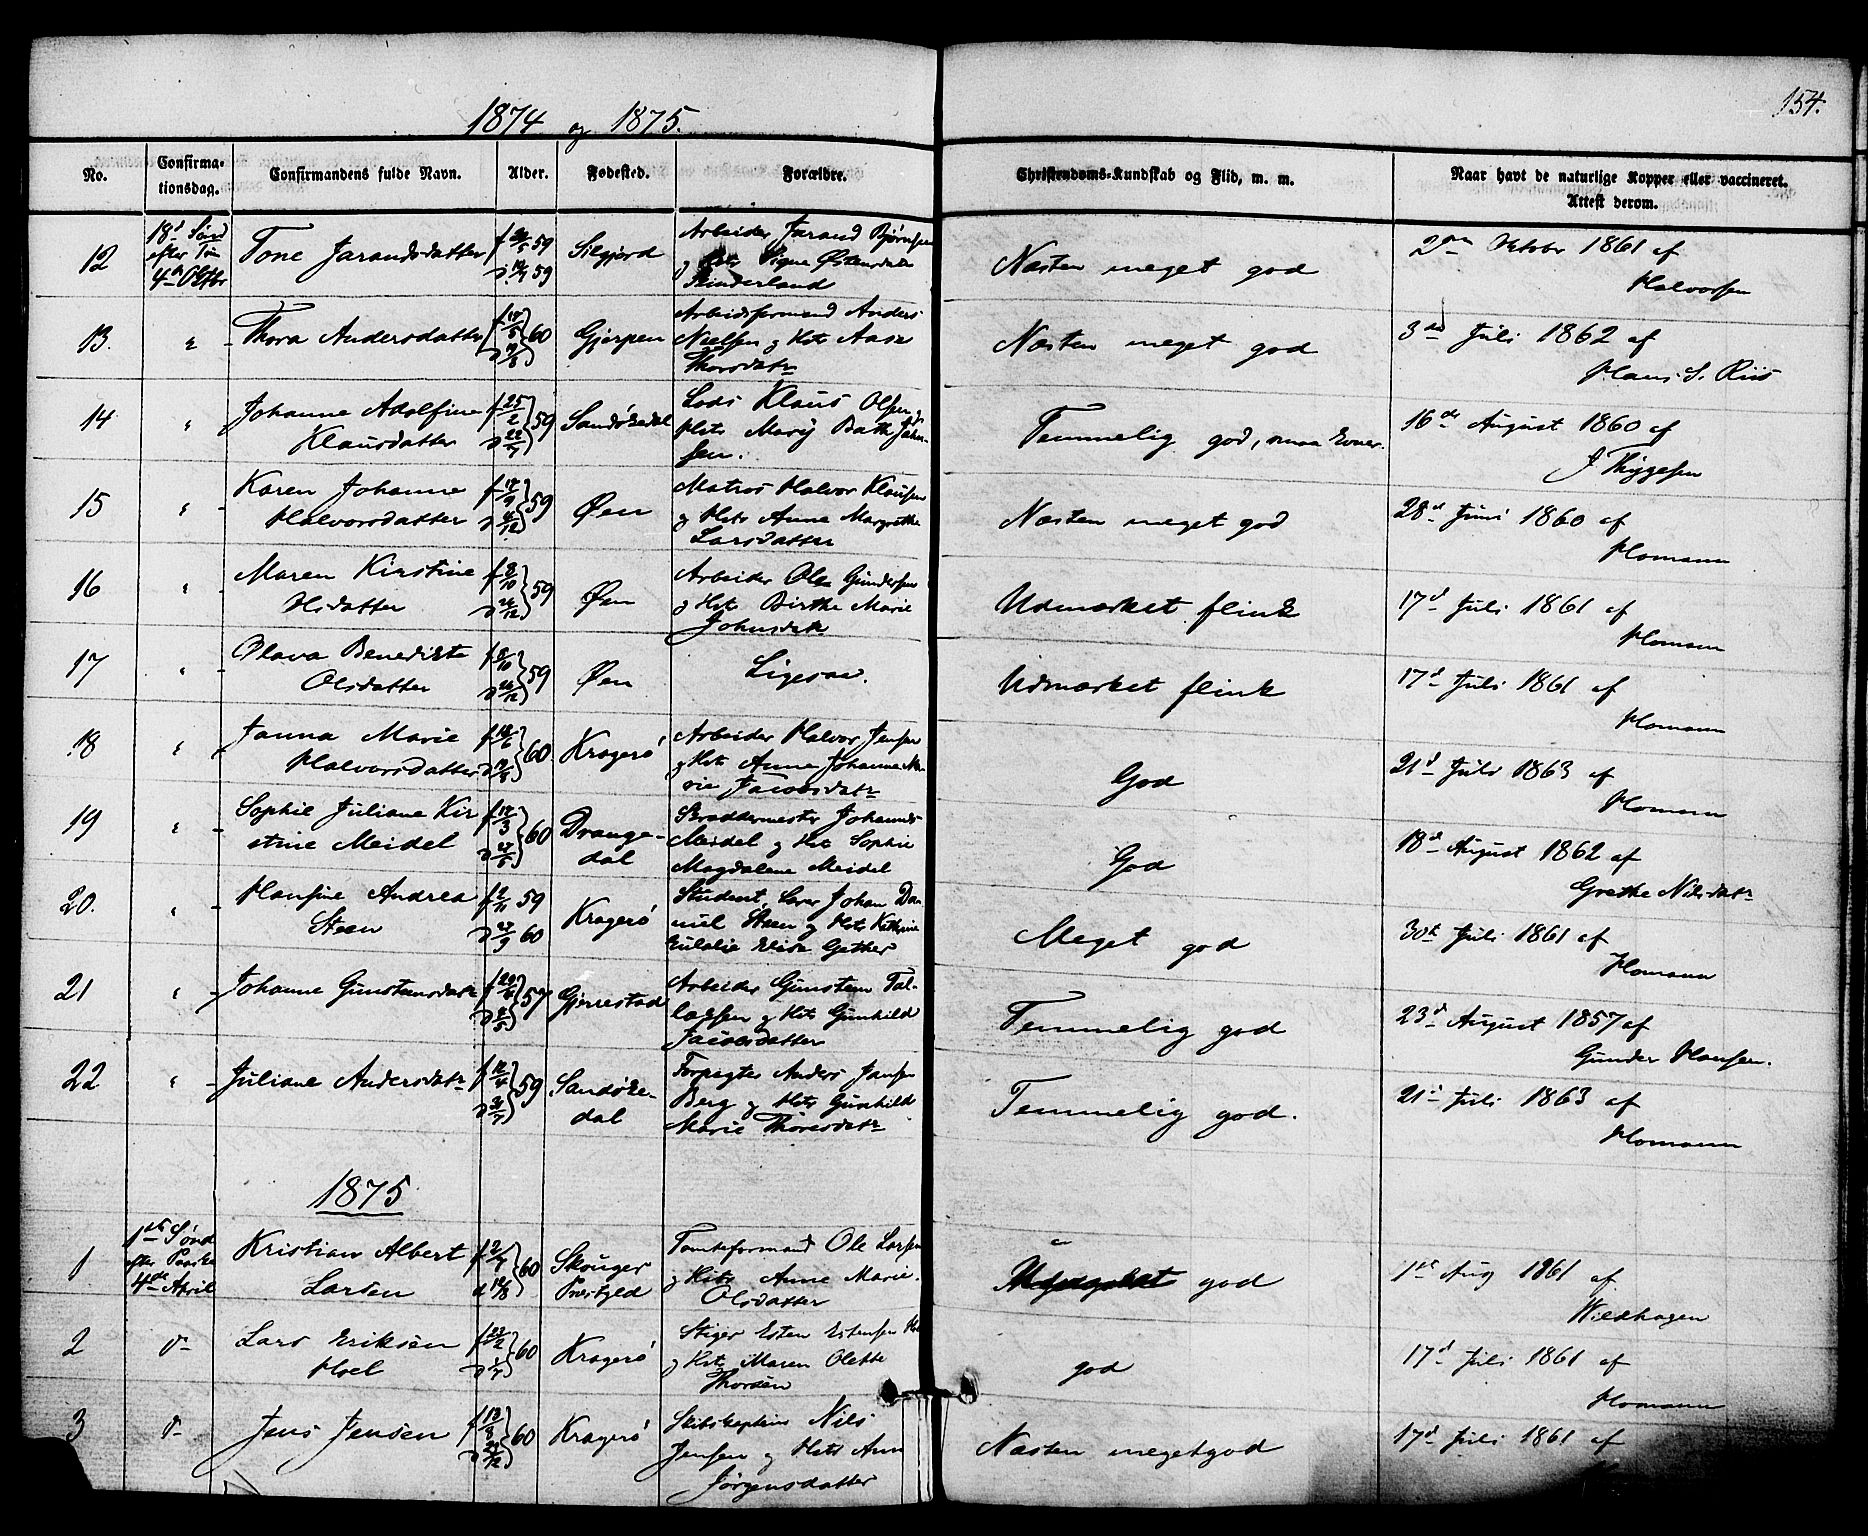 1874 og 1875.
154.
No.
Confirma-
tionsdag.
Confirmandens fulde Navn.
Alder.
Fødested.
Forældre.
Christendoms-Kundskab og Flid, m. m.
Naar havt de naturlige Kopper eller vaccineret.
Attest derom.
12
18d Sønd
efter Tr
4de Oktbr
Tone Jarandsdatter
59
59
Silgjord
Arbeider Jarand Bjørnsen
og Hstr Signe Østensdatter
Næsten meget god
2den Oktober 1861 af
Halvorsen
13.
"
Thora Andersdatter
60
Gjerpen
Arbeidsformand Anders
Nielsen og Hstr Aase
Thorsdatr
Næsten meget god
3die Juli 1862 af
Hans S. Riis
14
"
Johanne Adolfine
Klausdatter
f 25/2
d 22/7
59
Sandøkedal
Lods Klaus Olsen og
Hstr Mary Bathe John-
sen.
Temmelig god, smaa Evner.
16de August 1860 af
J Thygesen
15
"
Karen Johanne
Halvorsdatter
59
Øen
Matros Halvor Klausen
og Hstr Anne Margrethe
Larsdatter
Næsten meget god
28d Juni 1860 af
Homann
16
"
Maren Kirstine
Olsdatter
f 8/10
d 26/12
59
Øen
Arbeider Ole Gundersen
og Hstr Birthe Marie
Johnsdatr
Udmærket flink
17d Juli 1861 af
Homann
17
"
Olava Benedikte
Olsdatter
f 8/10
d 26/12
59
Øen
Ligesaa.
Udmærket flink
17d Juli 1861 af
Homann
18
"
Janna Marie
Halvorsdatter
60
Kragerø
Arbeider Halvor Jensen
og Hstr Anne Johanne Ma-
rie Jacobsdatr
God
21d Juli 1863 af
Homann
19
"
Sophie Juliane Kir
stine Meidel
60
Drange-
dal
Skræddermester Johannes
Meidel og Hstr Sophie
Magdalene Meidel
God
18d August 1862 af
Grethe Nilsdatr
20.
"
Hansine Andrea
Steen
f 2/11 59
d 27/9 60
Kragerø
Student, Lærer Johan Da-
niel Steen og Hstr Kathrine
Eulalie Elise Gether
Meget god
30te Juli 1861 af
Homann
21
"
Johanne Gunsteinsdatr
57
Gjerrestad
Arbeider Gunstein Tal-
laksen og Hstr Gunhild
Jacobsdatter
Temmelig god
23d August 1857 af
Gunder Hansen.
22
"
Juliane Andersdatr
59
Sandøke-
dal
Forpagter Anders Jansen
Berg og Hstr Gunhild
Marie Thoresdatr
Temmelig god.
21d Juli 1863 af
Homann
1875
1
1ste Sønd
efter Paaske
4de April
Kristian Albert
Larsen
60
Skouger
Prestgjeld
Tomteformand Ole Larsen
og Hstr Anne Marie
Olsdatter
god
1ste Aug 1861 af
Wildhagen
2
d-
Lars Eriksen
Hoel
60
Kragerø
Stiger Esten Estensen
og Hstr Maren Olette
Thorsen
god
17d Juli 1861 af
Homann
3
d-
Jens Jensen
60
Kragerø
Skibskaptein Nils
Jensen og Hstr Ann
Jørgensdatter
Næsten megetgod
17d Juli 1861 af